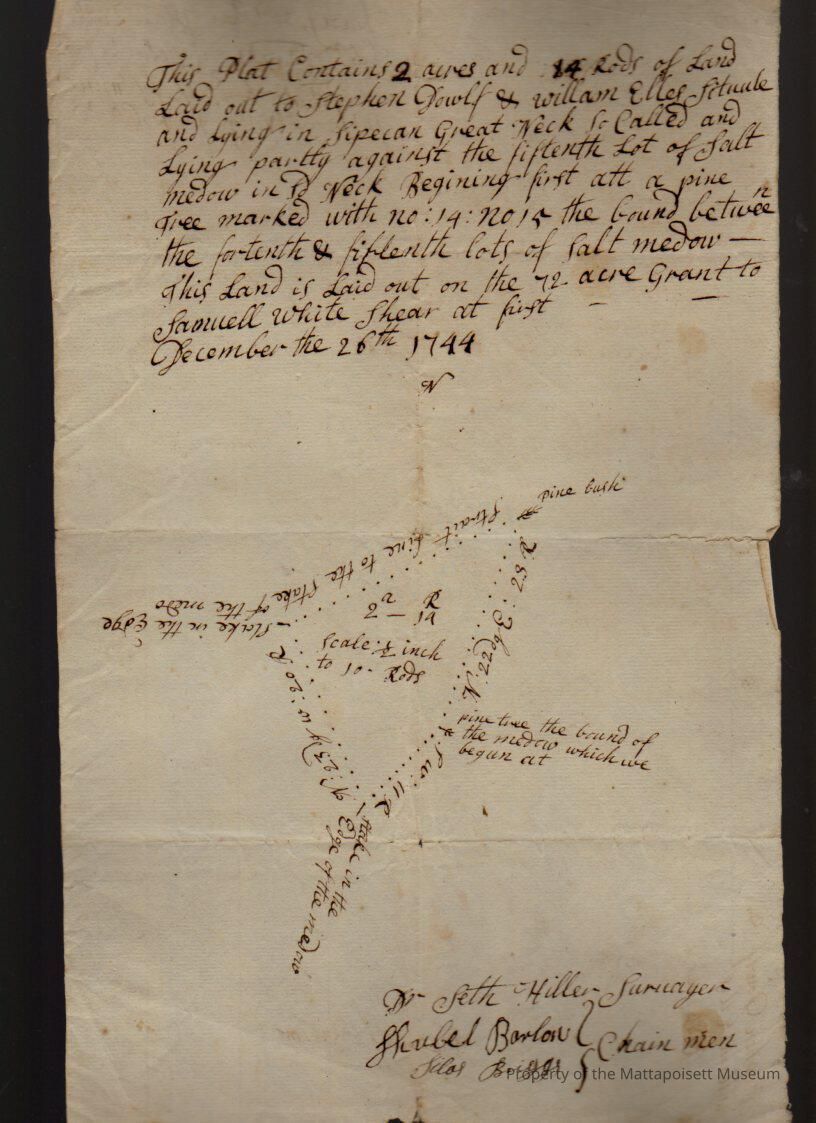 This Plat Contains 2 acres and 14 Rods of Land
Laid out to Stephen Dowlf & willam Elles Situate
and Lying in Sipecan Great Neck So Called and
Lying partly against the fiftenth Lot of Salt
medow in sd Neck Begining first att a pine
Tree marked with no:14: no 15 the bound between
the fortenth & fiftenth lots of Salt medow —
This Land is Laid out on the 72 acre Grant to
Samuell White Shear at first — —
December the 26th 1744
N
pine bush
Strait Line to the Stake
Stake in the Edge
of the medo
2 — 14 R
Scale: inch
to 10 - Rods
N: 22d E: 23 R
N: 23d w: 20 R
pine tree the bound of
the medow which we
began at
S w: 11 R
Stake in the
Edge of the medow
Dr Seth Hiller Survayer
Shubel Barlow
Silas
Chain men
Property of the Mattapoisett Museum